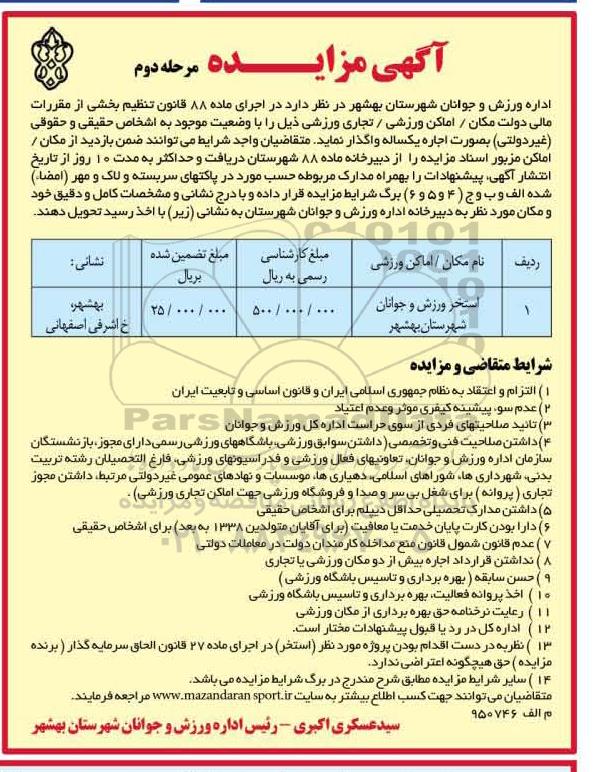 آگهی مزایـــده مرحله دوم
اداره ورزش و جوانان شهرستان بهشهر در نظر دارد در اجرای ماده ۸۸ قانون تنظیم بخشی از مقررات
مالی دولت مکان / اماکن ورزشی / تجاری ورزشی ذیل را با وضعیت موجود به اشخاص حقیقی و حقوقی
(غیردولتی) بصورت اجاره یکساله واگذار نماید. متقاضیان واجد شرایط می توانند ضمن بازدید از مکان /
اماکن مزبور اسناد مزایده را از دبیرخانه ماده ۸۸ شهرستان دریافت و حداکثر به مدت ۱۰ روز از تاریخ
انتشار آگهی، پیشنهادات را بهمراه مدارک مربوطه حسب مورد در پاکتهای سربسته و لاک و مهر (امضاء)
شده الف و ب و ج ( ۴ و ۵ و ۶) برگ شرایط مزایده قرار داده و با درج نشانی و مشخصات کامل و دقیق خود
و مکان مورد نظر به دبیرخانه اداره ورزش و جوانان شهرستان به نشانی (زیر) با اخذ رسید تحویل دهند.
ردیف نام مکان / اماکن ورزشی مبلغ کارشناسی رسمی به ریال مبلغ تضمین شده بریال نشانی:
۱ استخر ورزش و جوانان شهرستان بهشهر ۵۰۰/۰۰۰/۰۰۰ ۲۵/۰۰۰/۰۰۰ بهشهر، خ اشرفی اصفهانی
شرایط متقاضی و مزایده
۱) التزام و اعتقاد به نظام جمهوری اسلامی ایران و قانون اساسی و تابعیت ایران
۲) عدم سوء پیشینه کیفری موثر و عدم اعتیاد
۳) تائید صلاحیتهای فردی از سوی حراست اداره کل ورزش و جوانان
۴) داشتن صلاحیت فنی و تخصصی (داشتن سوابق ورزشی، باشگاههای ورزشی رسمی دارای مجوز، بازنشستگان
سازمان اداره ورزش و جوانان، تعاونیهای فعال ورزشی و فدراسیونهای ورزشی، فارغ التحصیلان رشته تربیت
بدنی، شهرداری ها، شوراهای اسلامی، دهیاری ها، موسسات و نهادهای عمومی غیردولتی مرتبط، داشتن مجوز
تجاری ( پروانه ) برای شغل بی سر و صدا و فروشگاه ورزشی جهت اماکن تجاری ورزشی) .
۵) داشتن مدارک تحصیلی حداقل دیپلم برای اشخاص حقیقی
۶) دارا بودن کارت پایان خدمت یا معافیت (برای آقایان متولدین ۱۳۳۸ به بعد) برای اشخاص حقیقی
۷) عدم قانون شمول قانون منع مداخله کارمندان دولت در معاملات دولتی
۸) نداشتن قرارداد اجاره بیش از دو مکان ورزشی یا تجاری
۹) حسن سابقه ( بهره برداری و تاسیس باشگاه ورزشی )
۱۰) اخذ پروانه فعالیت، بهره برداری و تاسیس باشگاه ورزشی
۱۱) رعایت نرخنامه حق بهره برداری از مکان ورزشی
۱۲) اداره کل در رد یا قبول پیشنهادات مختار است.
۱۳) نظر به در دست اقدام بودن پروژه مورد نظر (استخر) در اجرای ماده ۲۷ قانون الحاق سرمایه گذار ( برنده
مزایده ) حق هیچگونه اعتراضی ندارد.
۱۴) سایر شرایط مزایده مطابق شرح مندرج در برگ شرایط مزایده می باشد.
متقاضیان می توانند جهت کسب اطلاع بیشتر به سایت www.mazandaran sport.ir مراجعه فرمایند.
م الف ۹۵۰۷۴۶
سیدعسکری اکبری – رئیس اداره ورزش و جوانان شهرستان بهشهر
ParsNamadData